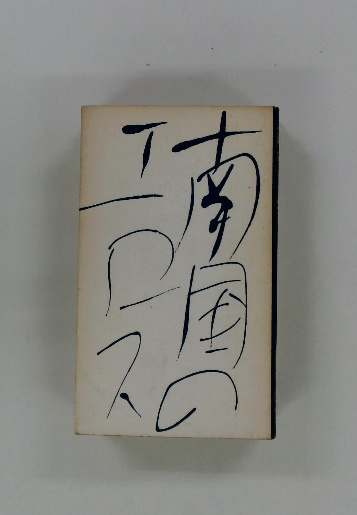 南国の
エロス